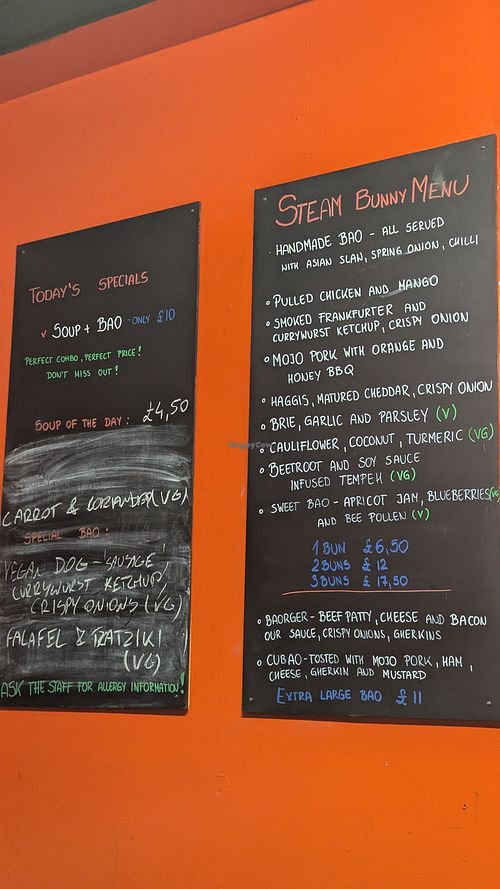 TODAY'S SPECIALS
V SOUP + BAO - ONLY £10
PERFECT COMBO, PERFECT PRICE!
DON'T MISS OUT!
SOUP OF THE DAY: £4,50
CARROT & CORIANDER (VG)
SPECIAL BAO:
VEGAN DOG - 'SAUSAGE'
CURRYWURST KETCHUP,
CRISPY ONIONS (VG)
FALAFEL & TZATZIKI
(VG)
ASK THE STAFF FOR ALLERGY INFORMATION!
STEAM BUNNY MENU
- HANDMADE BAO - ALL SERVED
WITH ASIAN SLAW, SPRING ONION, CHILLI
PULLED CHICKEN AND MANGO
SMOKED FRANKFURTER AND
CURRYWURST KETCHUP, CRISPY ONION
MOJO PORK WITH ORANGE AND
HONEY BBQ
HAGGIS, MATURED CHEDDAR, CRISPY ONION
BRIE, GARLIC AND PARSLEY (V)
CAULIFLOWER, COCONUT, TURMERIC (VG)
BEETROOT AND SOY SAUCE
INFUSED TEMPEH (VG)
SWEET BAO - APRICOT JAM, BLUEBERRIES (VG)
AND BEE POLLEN (V)
1 BUN £6,50
2 BUNS £12
3 BUNS £17,50
BAORGER - BEEF PATTY, CHEESE AND BACON
OUR SAUCE, CRISPY ONIONS, GHERKINS
CUBAO - TOSTED WITH MOJO PORK, HAM,
CHEESE, GHERKIN AND MUSTARD
EXTRA LARGE BAO £11
HappyCow